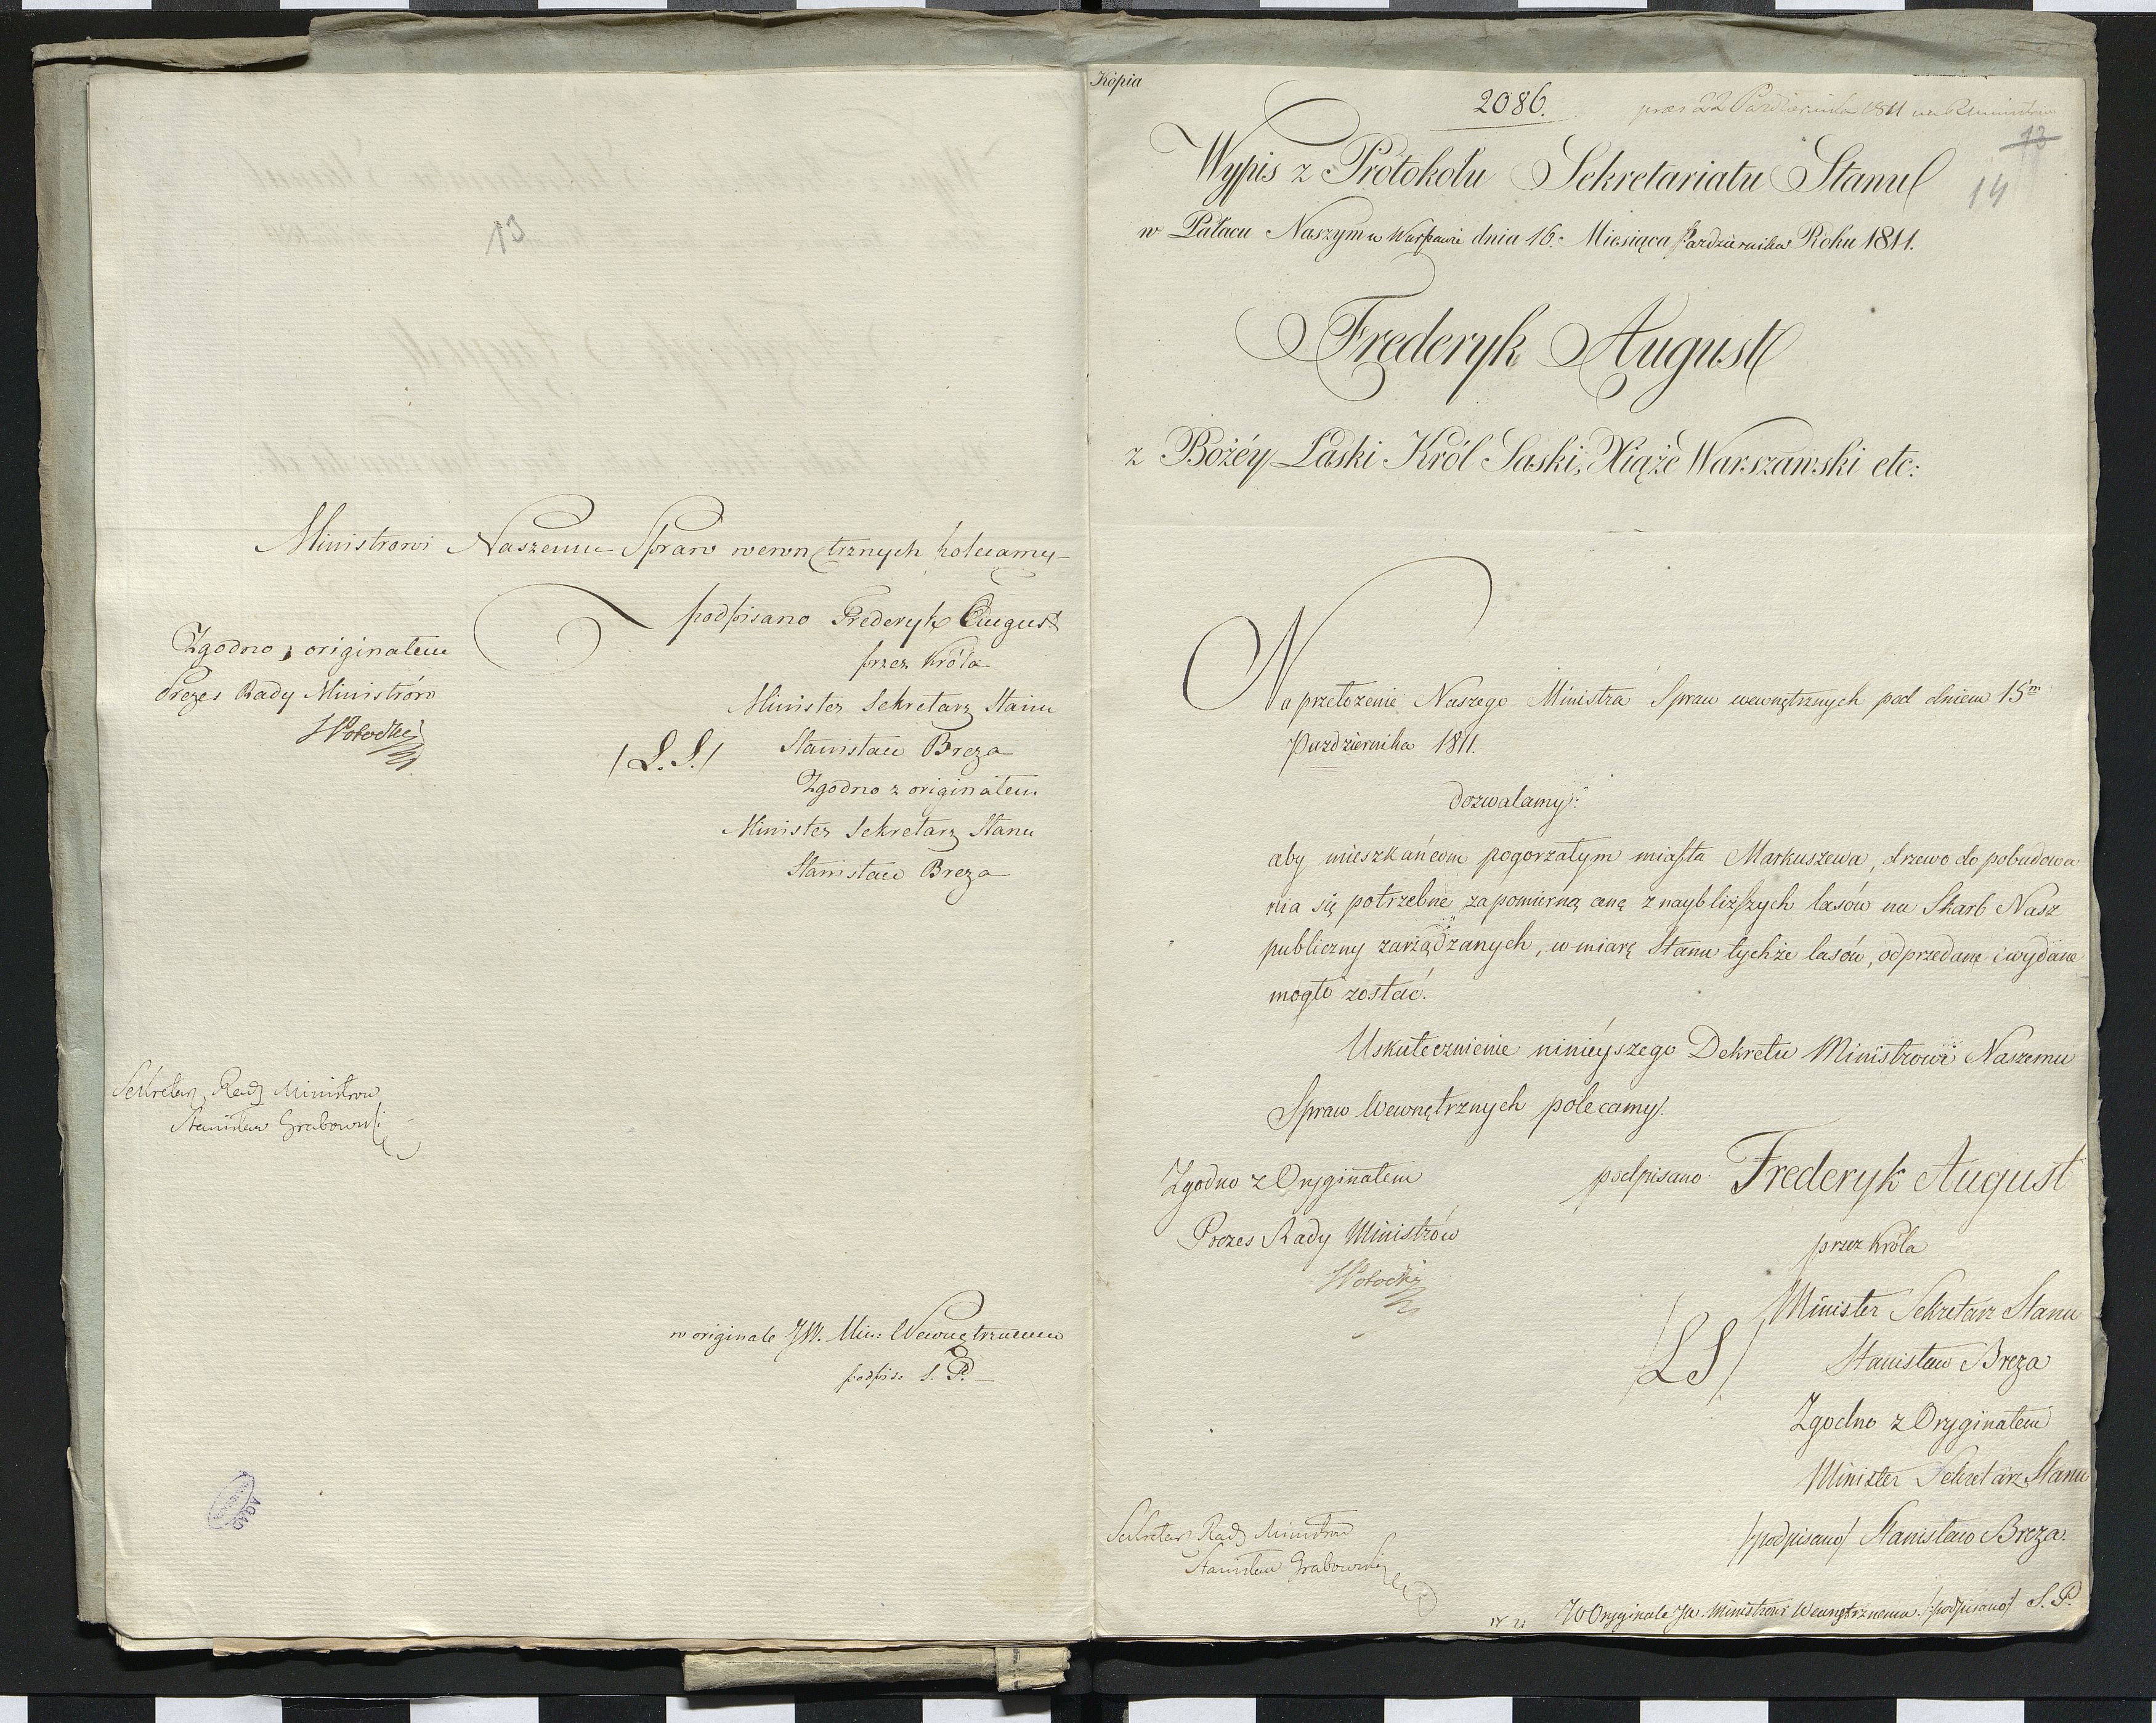 13
Ministrowi Naszemu Spraw wewnętrznych polecamy
podpisano Frederyk August
przez Króla
Minister Sekretarz Stanu
/L.S./ Stanisław Breza
Zgodno z originałem
Minister Sekretarz Stanu
Stanisław Breza
Zgodno z originałem
Prezes Rady Ministrów
Sekretarz Rady Ministrow
Stanisław Grabowski
w originale JW. Min: Wewnętrznemu
podpis. S. P.
AGAD
Kopia
2086.
praes 22 Pazdziernika 1811
13
14
Wypis z Protokołu Sekretariatu Stanu
w Pałacu Naszym w Warszawie dnia 16. Miesiąca Pazdziernika Roku 1811.
Frederyk August
z Bożéy Łaski Król Saski, Xiąże Warszawski etc:
Na przełożenie Naszego Ministra Spraw wewnętrznych pod dniem 15m
Pazdziernika 1811.
dozwalamy:
aby mieszkańcom pogorzałym miasta Markuszewa, drzewo do pobudowa
nia się potrzebne za pomierną cenę z naybliższych lasów na Skarb Nasz
publiczny zarządzanych, w miarę Stanu tychże lasów, odprzedane i wydane
mogło zostać.
Uskutecznienie ninieyszego Dekretu Ministrowi Naszemu
Spraw Wewnętrznych polecamy.
Zgodno z Oryginałem
Prezes Rady Ministrów
podpisano Frederyk August
przez Króla
Minister Sekretarz Stanu
/LS/ Stanisław Breza
Zgodno z Oryginałem
Minister Sekretarz Stanu
/podpisano/ Stanisław Breza.
Sekretarz Rady Ministrow
Stanisław Grabowski
W Oryginale JW. Ministrowi Wewnętrznemu /podpisano/ S. P.